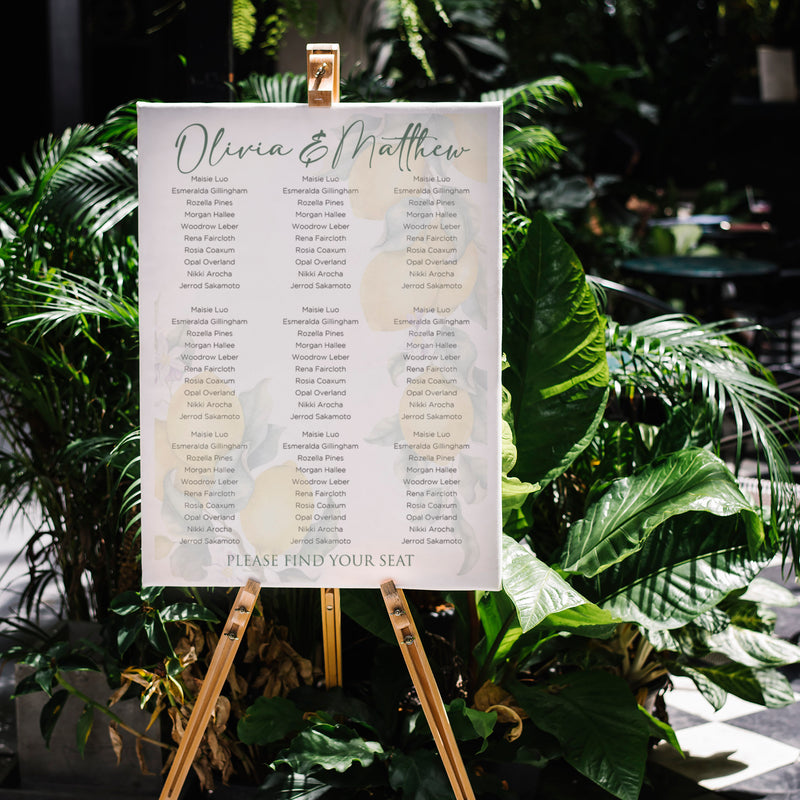 Olivia & Matthew
Maisie Luo
Esmeralda Gillingham
Rozella Pines
Morgan Hallee
Woodrow Leber
Rena Faircloth
Rosia Coaxum
Opal Overland
Nikki Arocha
Jerrod Sakamoto
Maisie Luo
Esmeralda Gillingham
Rozella Pines
Morgan Hallee
Woodrow Leber
Rena Faircloth
Rosia Coaxum
Opal Overland
Nikki Arocha
Jerrod Sakamoto
Maisie Luo
Esmeralda Gillingham
Rozella Pines
Morgan Hallee
Woodrow Leber
Rena Faircloth
Rosia Coaxum
Opal Overland
Nikki Arocha
Jerrod Sakamoto
Maisie Luo
Esmeralda Gillingham
Rozella Pines
Morgan Hallee
Woodrow Leber
Rena Faircloth
Rosia Coaxum
Opal Overland
Nikki Arocha
Jerrod Sakamoto
Maisie Luo
Esmeralda Gillingham
Rozella Pines
Morgan Hallee
Woodrow Leber
Rena Faircloth
Rosia Coaxum
Opal Overland
Nikki Arocha
Jerrod Sakamoto
Maisie Luo
Esmeralda Gillingham
Rozella Pines
Morgan Hallee
Woodrow Leber
Rena Faircloth
Rosia Coaxum
Opal Overland
Nikki Arocha
Jerrod Sakamoto
Maisie Luo
Esmeralda Gillingham
Rozella Pines
Morgan Hallee
Woodrow Leber
Rena Faircloth
Rosia Coaxum
Opal Overland
Nikki Arocha
Jerrod Sakamoto
Maisie Luo
Esmeralda Gillingham
Rozella Pines
Morgan Hallee
Woodrow Leber
Rena Faircloth
Rosia Coaxum
Opal Overland
Nikki Arocha
Jerrod Sakamoto
Maisie Luo
Esmeralda Gillingham
Rozella Pines
Morgan Hallee
Woodrow Leber
Rena Faircloth
Rosia Coaxum
Opal Overland
Nikki Arocha
Jerrod Sakamoto
PLEASE FIND YOUR SEAT